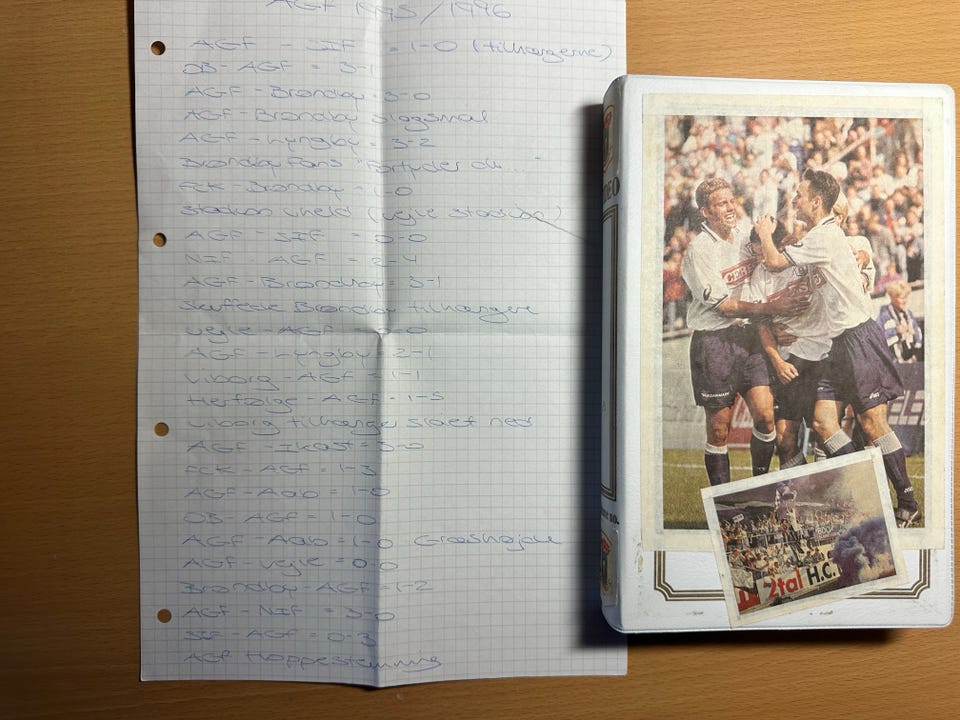 AGF 1995/1996
AGF - SIF = 1-0 (tilhængerne)
OB-AGF = 3-1
AGF-Brøndby = 3-0
AGF-Brøndby slagsmål
AGF-Lyngby = 3-2
Brøndby Fans "Fortyder du...
FCK-Brøndby = 1-0
Stadion uheld (Vejle stadion)
AGF - SIF = 0-0
NIF - AGF = 2-4
AGF-Brøndby = 3-1
Skuffede Brøndby tilhængere
Vejle-AGF -0
AGF-Lyngby = 2-1
Viborg-AGF = 1-1
Herfølge-AGF = 1-5
Viborg tilhænger slået ned
AGF-Ikast -0
FCK-AGF = 1-3
AGF-AaB = 1-0
OB-AGF = 1-0
AGF-AaB = 1-0
AGF-Vejle = 0-0
Brøndby-AGF = 1-2
AGF-NIF = 3-0
SIF-AGF = 0-3
AGF Hoppestemning
CER
2tal H.C.